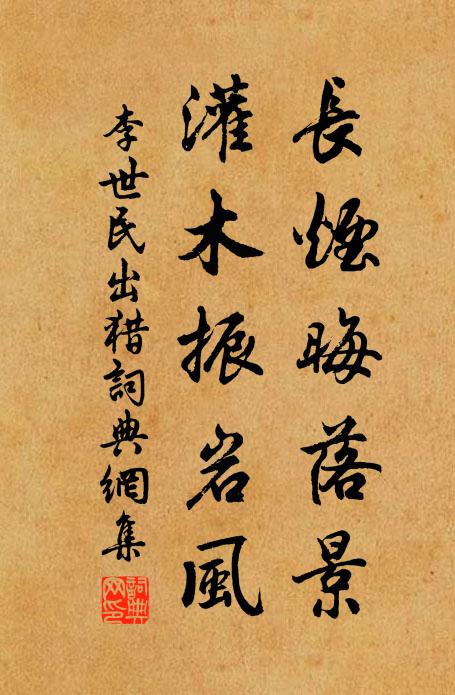 長煙晦落景
灌木振岩風
李世民出猎詞典網集
詞典网印